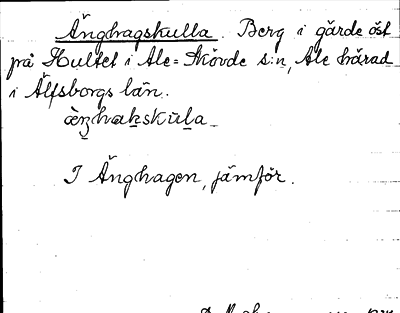 Änghagskulla. Berg i gärde öst
på Hultet i Ale=Skövde s:n, Ale härad
i Älfsborgs län.
I Änghagen, jämför.